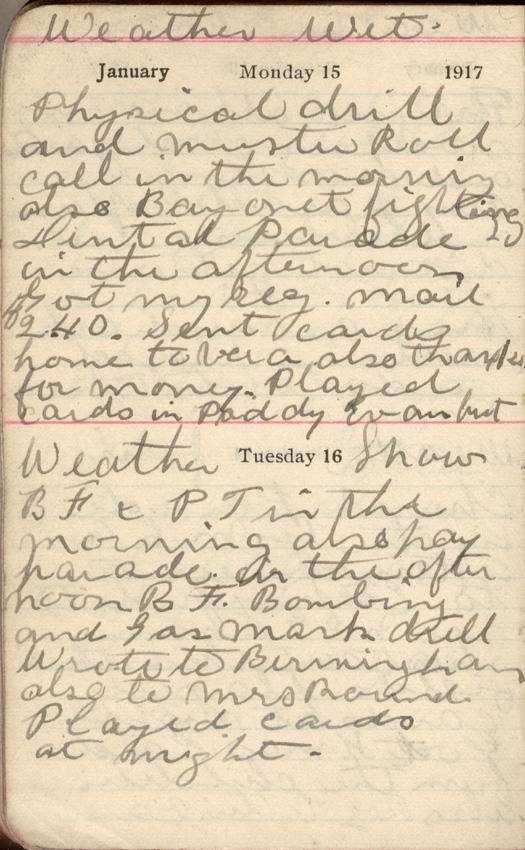 Weather Wet.
January Monday 15 1917
Physical drill
and muster Roll
call in the morning
also Bayonet fighting
Dental Parade
in the afternoon
Got my reg. mail
$240. Sent cards
home to Vera also thanks
for money. Played
cards in Paddy Evan hut
Weather Tuesday 16 Snow
B F & P T in the
morning also pay
parade. In the after
noon B F. Bombing
and Gas mark drill
Wrote to Birmingham
also to Mrs Round.
Played cards
at night.